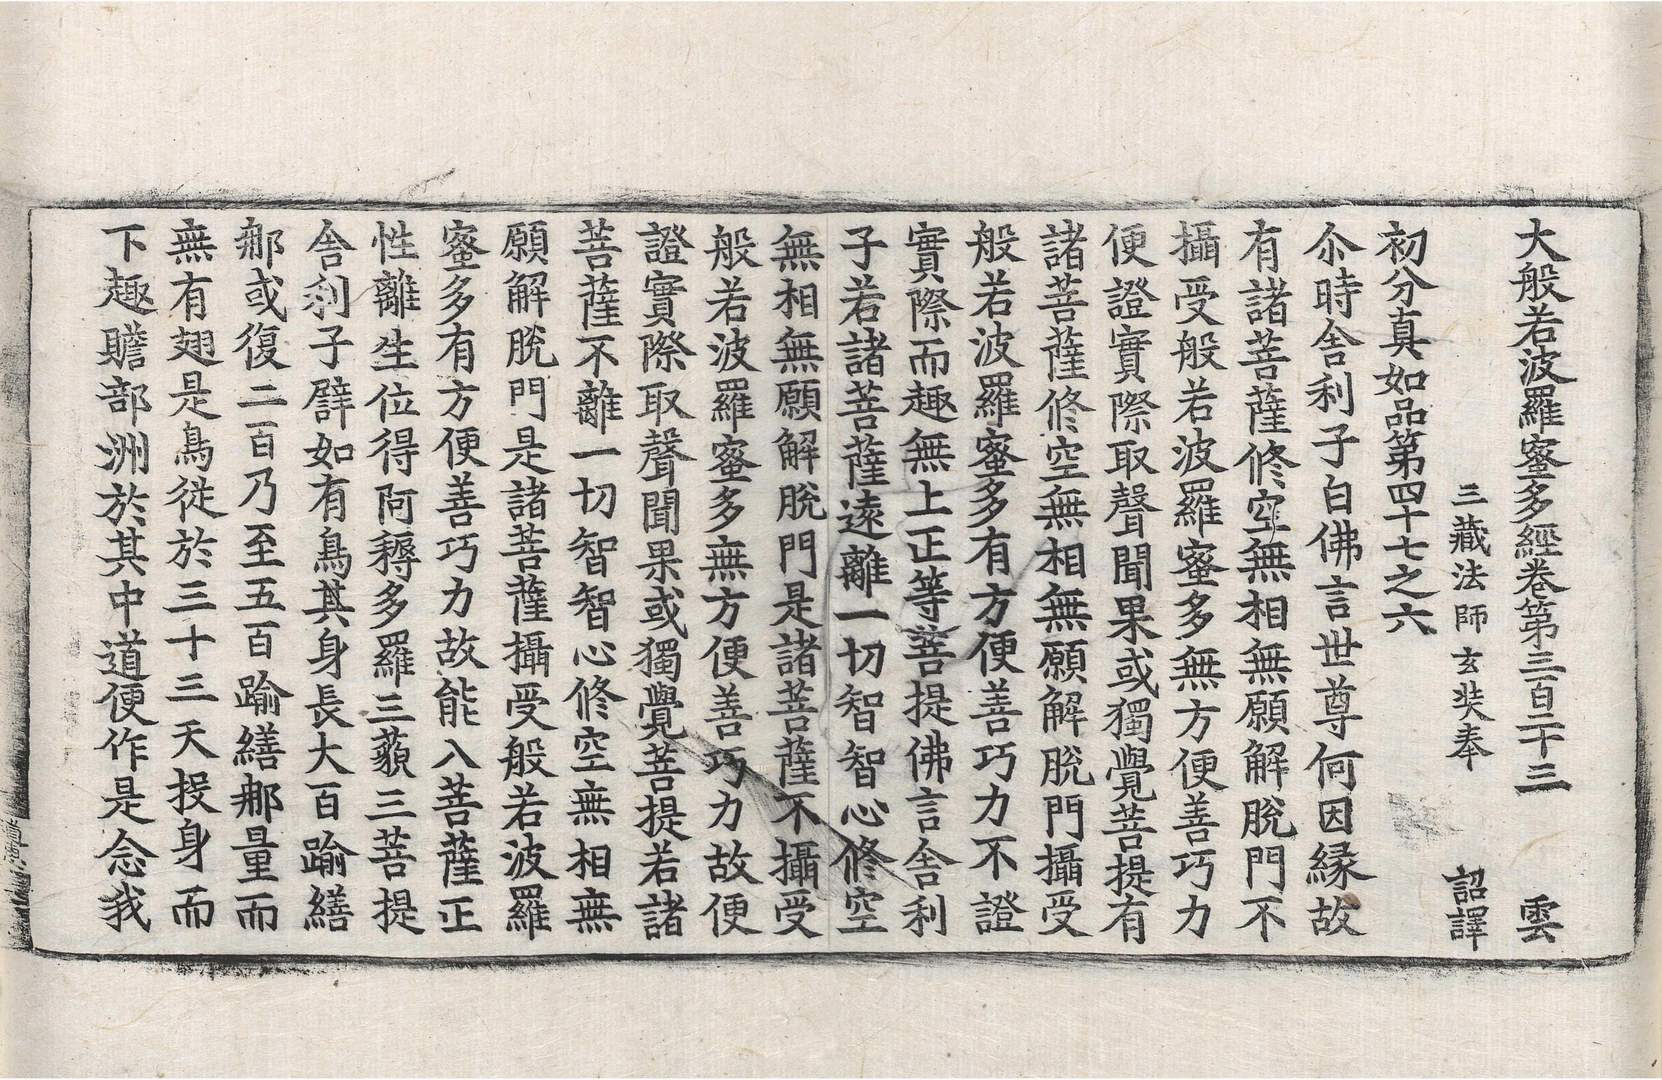 大般若波羅蜜多經卷第三百二十三 雲
三藏法師玄奘奉 詔譯
初分真如品第四十七之六
尒時舍利子白佛言世尊何因縁故
有諸菩薩修空無相無願解脫門不
攝受般若波羅蜜多無方便善巧力
便證實際取聲聞果或獨覺菩提有
諸菩薩修空無相無願解脫門攝受
般若波羅蜜多有方便善巧力不證
實際而趣無上正等菩提佛言舍利
子若諸菩薩遠離一切智智心修空
無相無願解脫門是諸菩薩不攝受
般若波羅蜜多無方便善巧力故便
證實際取聲聞果或獨覺菩提若諸
菩薩不離一切智智心修空無相無
願解脫門是諸菩薩攝受般若波羅
蜜多有方便善巧力故能入菩薩正
性離生位得阿耨多羅三藐三菩提
舍利子譬如有鳥其身長大百踰繕
那或復二百乃至五百踰繕那量而
無有翅是鳥從於三十三天投身而
下趣贍部洲於其中道便作是念我